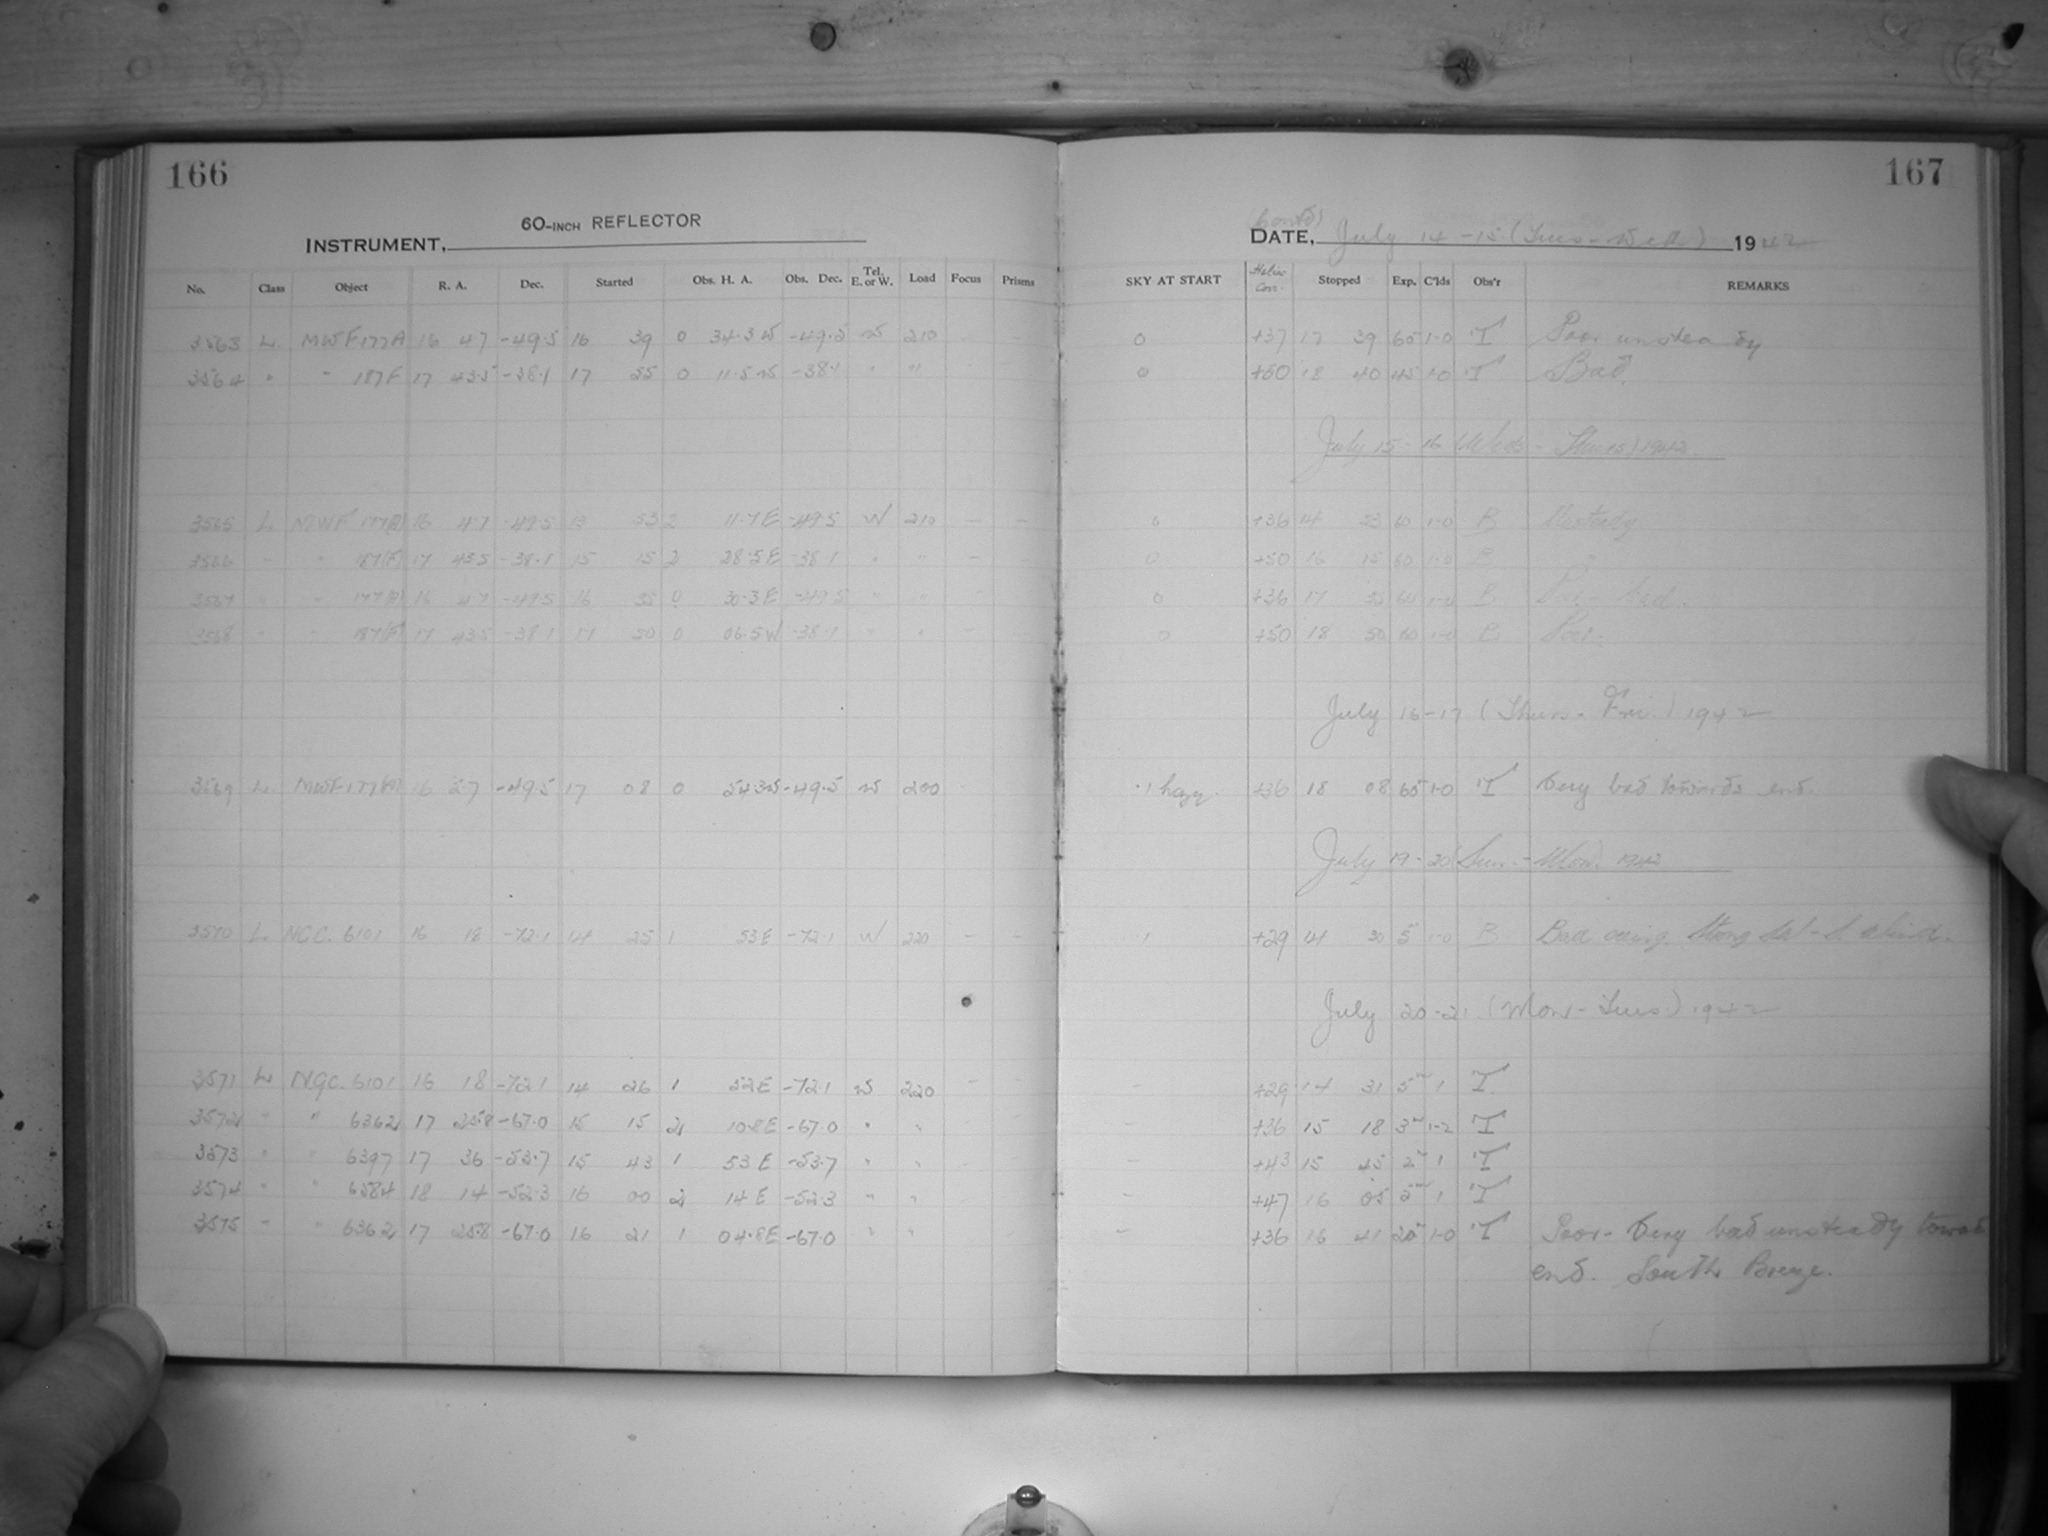 166
60-INCH REFLECTOR
INSTRUMENT,
No. Class Object R. A. Dec. Started Obs. H. A. Obs. Dec. Tel. E. or W. Load Focus Prisms
3563 L MWF 177A 16 47 -49.5 16 39 0 34.3 W -49.5 W 210 - -
3564 " " 187F 17 43.5 -38.1 17 55 0 11.5 W -38.1 " "
3565 L MWF 177(A) 16 47 -49.5 13 53 2 11.7 E -49.5 W 210 - -
3566 - " 187(F) 17 43.5 -38.1 15 15 2 28.5 E -38.1 " " -
3567 " " 177(A) 16 47 -49.5 16 35 0 30.3 E -49.5 " "
3568 " " 187(F) 17 43.5 -38.1 17 50 0 06.5 W -38.1 " "
3569 L MWF 177(A) 16 17 08 0 54.3 W -49.5 W 200
3570 L NGC. 6101 16 18 -72.1 14 25 1 53 E -72.1 W 220 - -
3571 L N.G.C. 6101 16 18 -72.1 14 26 1 52 E -72.1 W 220 - -
3572 " " 6362 17 25.8 -67.0 15 15 2 10.8 E -67.0 " "
3573 " " 6397 17 36 -53.7 15 43 1 53 E -53.7 " "
3574 " " 6584 18 14 -52.3 16 00 2 14 E -52.3 " "
3575 - " 6362 17 25.8 -67.0 16 21 1 04.8 E -67.0 " "
167
(Contd)
DATE, July 14-15 (Tues-Weds) 1942
SKY AT START Helioc Corr. Stopped Exp. C'lds Obs'r REMARKS
0 +37 17 39 60 1-0 T Poor unsteady
0 +50 18 40 45 1-0 T Bad.
July 15-16 (Weds-Thurs) 1942.
0 +36 14 53 60 1-0 B Unsteady
0 +50 16 15 60 1-0 B "
0 +36 17 35 60 1-0 B Poor-bad.
0 +50 18 50 60 1-0 B Poor.
July 16-17 (Thurs-Fri.) 1942
.1 hazy. +36 18 08 60 1-0 T Very bad towards end.
July 19-20 Sun.-Mon. 1942
1 +29 14 30 5 1-0 B Bad seeing. Strong wind.
July 20-21 (Mon-Tues.) 1942
- +29 14 31 5m 1 T
- +36 15 18 3m 1-2 T
- +43 15 45 2m 1 T
- +47 16 05 5m 1 T
- +36 16 41 20 1-0 T Poor-Very bad unsteady toward
end. South Breeze.